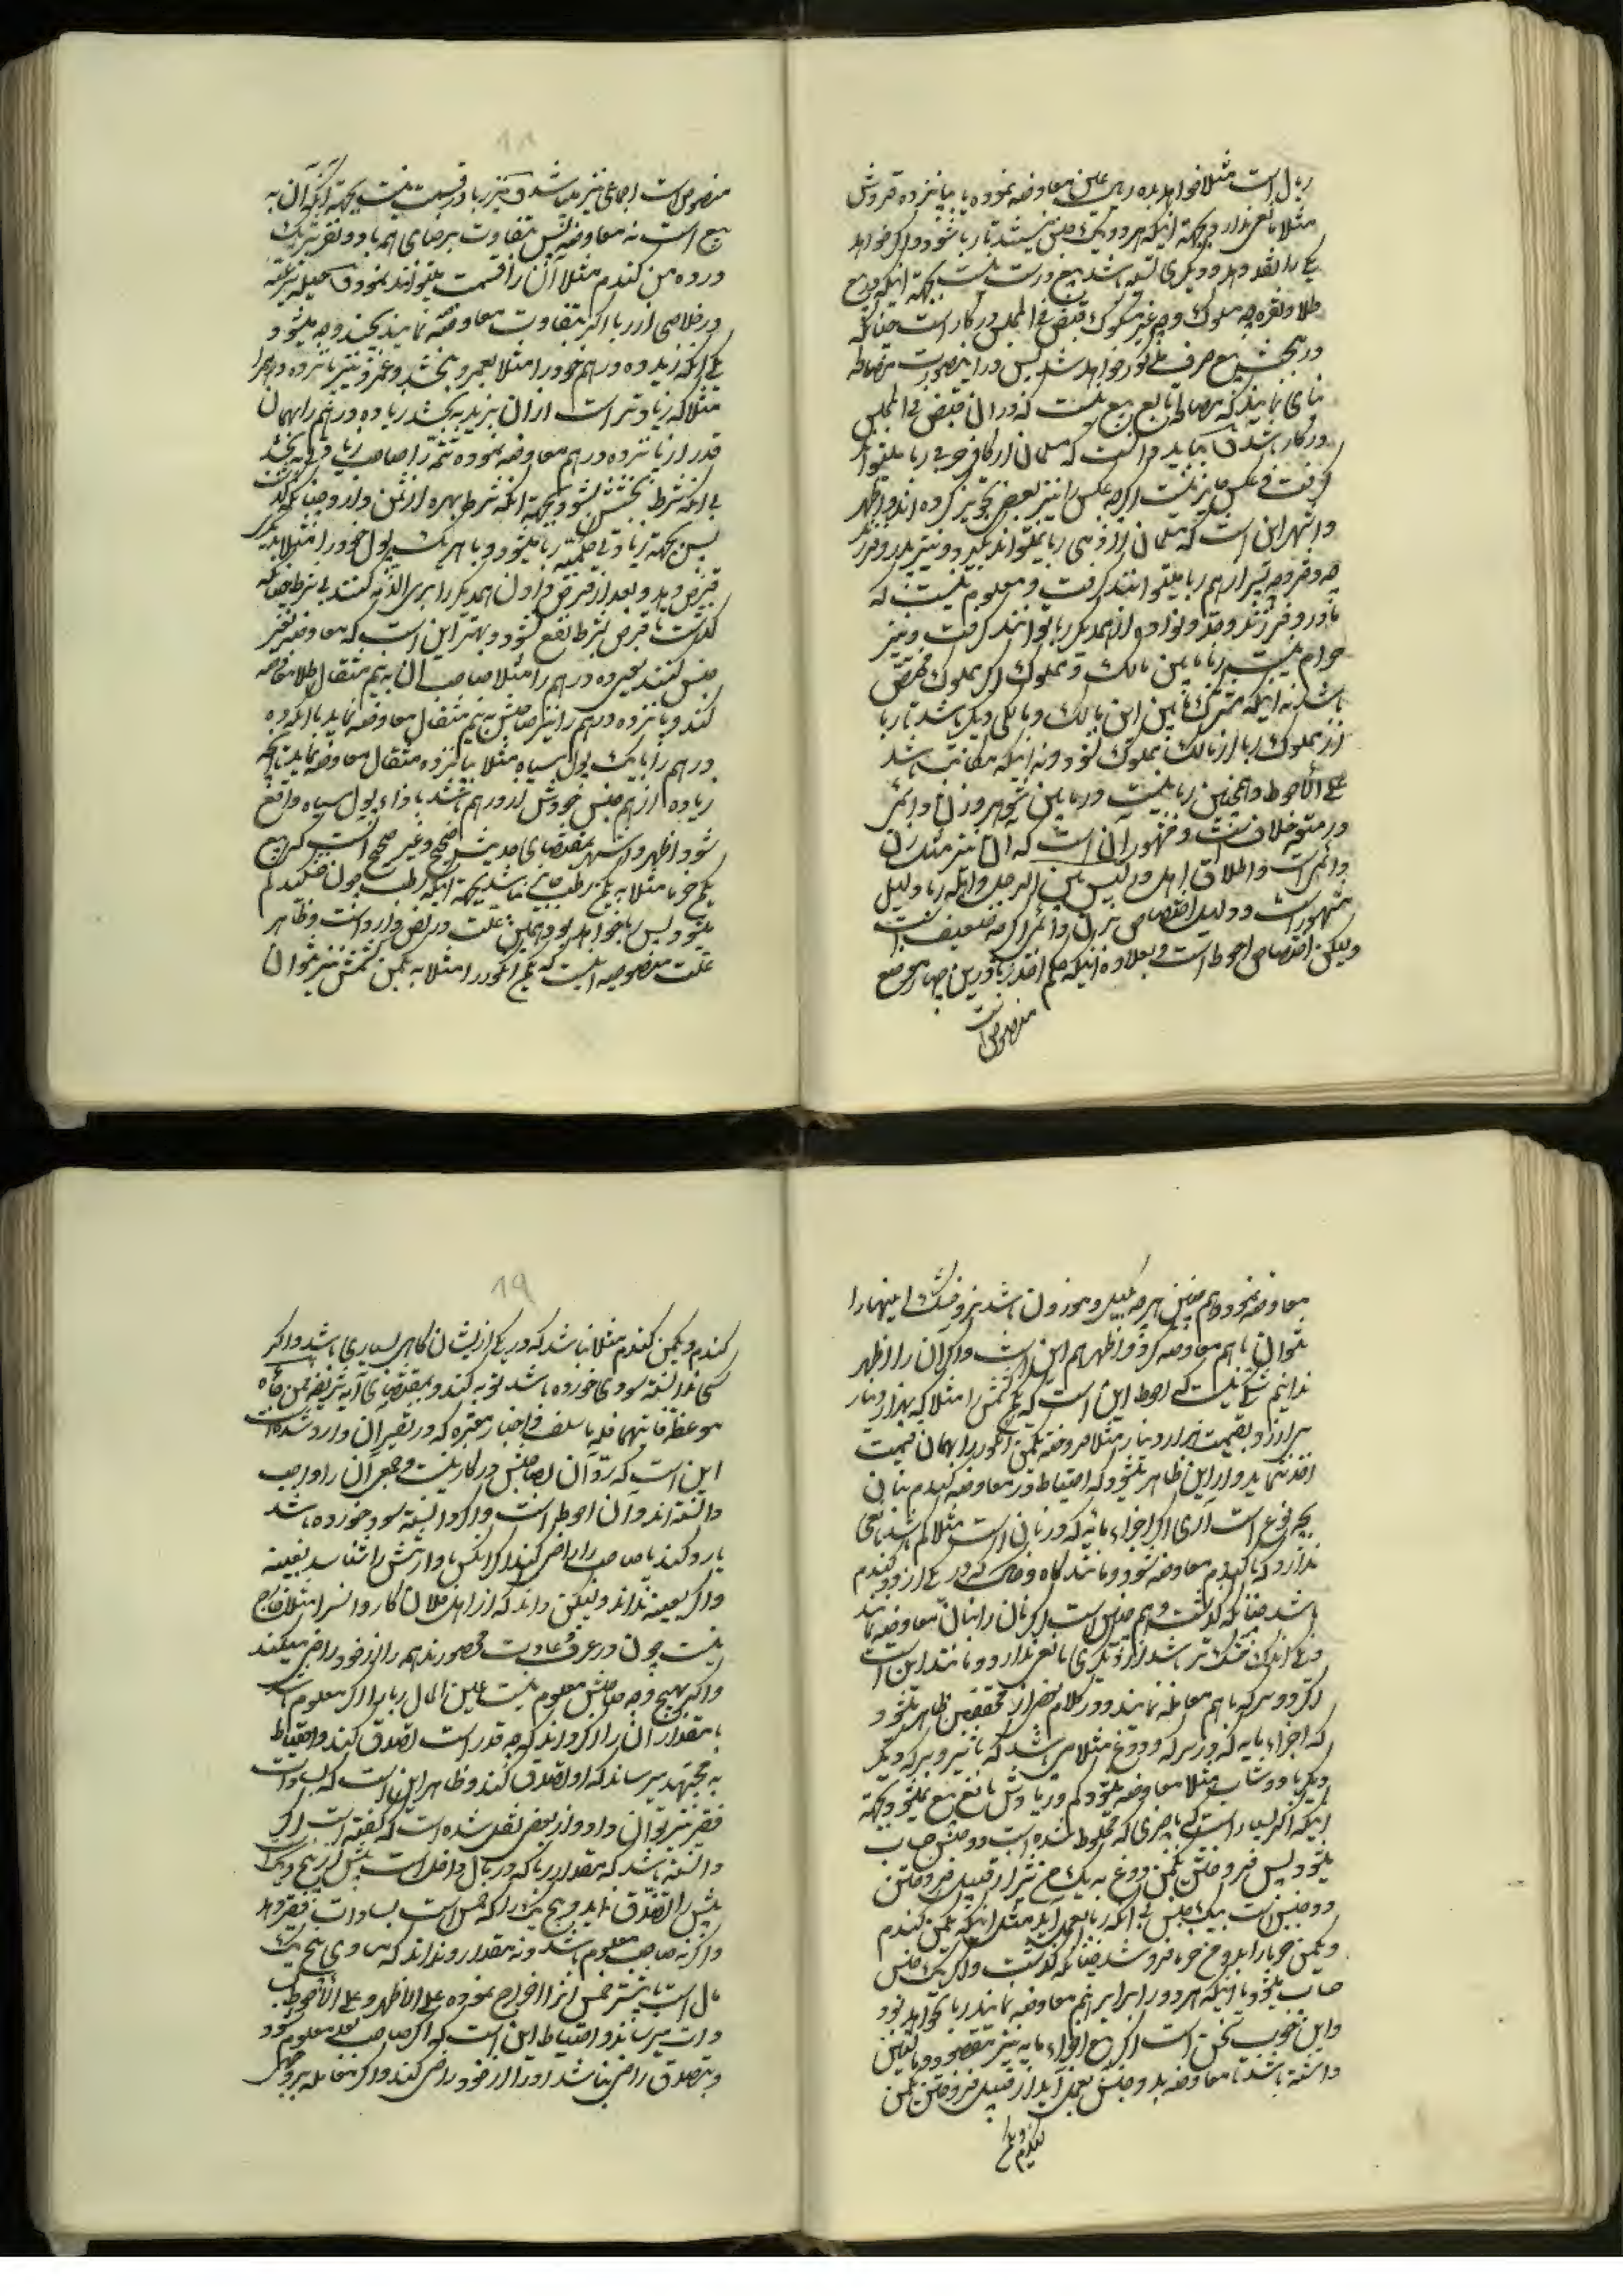 ریال است مثلا خواهد ده ریال عین معاوضه نموده با پانزده قروش
مثلا مانعی ندارد بجهة اینکه هر دو یک جنس نیستند تا ربا شود و اگر خواهد
یکی را نقد و دیگری نسیه باشد بیع درست نیست بجهة اینکه در بیع
طلا و نقره چه مسکوک و چه غیر مسکوک قبض فی المجلس در کار است چنانکه
در بحث بیع صرف مذکور خواهد شد پس در اینصورت مصالحه
نمایند که مصالحه تابع بیع نیست که در آن قبض فی المجلس
در کار باشد و باید دانست که مسلمان از کافر حربی ربا میتواند
گرفت و عکس جایز نیست اگرچه عکس را نیز بعضی تجویز کرده اند و اظهر
و اشهر این است که مسلمان از ذمی ربا نمیتواند بگیرد و نیز پدر و فرزند
چه دختر و چه پسر از هم ربا میتوانند گرفت و معلوم نیست که
مادر و فرزند و جد و نواده از همدیگر ربا توانند گرفت و نیز
حرام نیست ربا مابین مالک و مملوک اگر مملوک مختص
باشد نه اینکه مشترک مابین این مالک و مالک دیگر باشد تا ربا
از مملوک ربا از مالک بمملوک شود و نه اینکه مکاتب باشد
علی الاحوط و همچنین ربا نیست در مابین شوهر و زن دائمی
در متعه خلاف است و مشهور آن است که آن نیز مثل زن
دائمی است و اطلاق اهل و لیس بین الرجل و اهله ربا دلیل
مشهور است و دلیل اختصاص بزن دائمی اگرچه ضعیف است
ولیکن اختصاص احوط است و بعلاوه اینکه حکم اخذ ربا در این چهار موضع
منصوص است
منصوص است اجماعی نیز میباشد و نیز ربا در قسمت نیست بجهة آنکه آن نه
بیع است نه معاوضه پس بتفاوت برضای هم با دو نفر شریک
در ده من گندم مثلا آن را قسمت میتوانند نمود و حیله شرعیه
در خلاصی از ربا اگر بتفاوت معاوضه نمایند بچند وجه میشود
یکی آنکه زید ده درهم خود را مثلا بعمرو بخشد و عمرو نیز پانزده درهم را
مثلا که زیادتر است از آن بزید بخشد یا ده درهم را بهمان
قدر از پانزده درهم معاوضه نموده تتمه را صاحب زیادتی به بخشد
بی آنکه شرط بخشش بشود بجهة آنکه شرط بهره از ثمن دارد چنانکه گذشت
پس بجهة زیادتی حکمیه ربا میشود و یا هر یک پول خود را مثلا بدیگری
قرض دهد و بعد از قرض دادن همدیگر را بری الذمه کنند بی شرط چنانکه
گذشت تا قرض بشرط نفع نشود و بهتر این است که معاوضه بغیر
جنس کنند یعنی ده درهم را مثلا صاحب آن به نیم مثقال طلا معاوضه
کند و پانزده درهم را نیز صاحبش به نیم مثقال معاوضه نماید یا آنکه ده
درهم را با یک پول سیاه مثلا بپانزده مثقال معاوضه نماید تا آنچه
زیاده از هم جنس خودش از درهم باشد بازاء پول سیاه واقع
شود و اظهر و اشهر بمقتضای حدیث صحیح و غیر صحیح آنست که بیع
یکمن خرما مثلا به یکمن رطب جایز نباشد بجهة اینکه رطب چون خشکید کم
میشود پس ربا خواهد بود و همین علت در نص وارد است و ظاهر
علت منصوصه اینست که یکمن انگور را مثلا به یکمن کشمش نیز نتوان
معاوضه نمود و هم جنس هر چه مکیل و موزون باشد تر و خشک اینها را
نتوان با هم معاوضه کرد و اظهر هم این است و اگر آن را اظهر
ندانیم شکی نیست که احوط این است که یکمن کشمش را مثلا که بهزار دینار
می ارزد بقیمت هزار دینار مثلا فروخته یکمن انگور را بهمان قیمت
اخذ نماید و از این ظاهر میشود که احتیاط در معاوضه گندم بنان
بچه نوع است آری اگر اجزاء مائیه که در نان است مثلا کم باشد مانعی
ندارد که با گندم معاوضه شود و مانند کاه و خاک که در یکی از دو گندم
باشد چنانکه گذشت و هم چنین است اگر نان را بنان معاوضه نمایند
و یکی اندک خشک تر باشد از دیگری مانعی ندارد و مانند این است
اگر دو سرکه با هم معامله نمایند و در کلام بعضی از محققین ظاهر میشود
که اجزاء مائیه که در سرکه و دوغ مثلا می باشد که با شیر و سرکه دیگر
و دیگر با دوشاب مثلا معاوضه میشود کم و زیادش مانع بیع نمیشود بجهة
اینکه اگر بسیار است که با چیزی که مخلوط شده است دو جنس حساب
میشود پس فروختن یکمن دوغ به یکمن شیر از قبیل فروختن
دو جنس است بیک جنس بی آنکه ربا بعمل آید مثل اینکه یکمن گندم
و یکمن جو را بدو من جو بفروشد چنانکه گذشت و اگر یک جنس
حساب میشود با اینکه هر دو را برابر هم معاوضه نمایند ربا نخواهد بود
و این خوب سخنی است اگر بیع اجزاء مائیه نیز مقصود و یقین
داشته باشند تا معاوضه بدو جنس بعمل آید از قبیل فروختن یکمن
گندم و یکمن
گندم و یکمن گندم مثلا نباشد که در یکی از ایشان کاهی بسیاری باشد و اگر
کسی ندانسته سودی خورده باشد توبه کند و بمقتضای آیه شریفه فمن جاءه
موعظة فانتهی فله ما سلف و اخبار معتبره که در تفسیر آن وارد شده است
این است که رد آن بصاحبش در کار نیست و جمعی آن را واجب
دانسته اند و آن احوط است و اگر دانسته سود خورده باشد
یا رد کند یا صاحب را راضی کند اگر آنکس یا وارثش را شناسد بعینه
و اگر بعینه نداند ولیکن داند که از اهل فلان کاروانسرا مثلا خارج
نیست چون در عرف و عادت محصورند همه را از خود راضی میکند
و اگر بهیچ وجه صاحبش معلوم نیست عین المال ربا را اگر معلوم باشد
یا مقدار آن را اگر داند که چه قدر است تصدق کند و احتیاط
به مجتهد میرساند که او تصدق کند و ظاهر این است که بسادات
فقیر نیز توان داد و از بعضی نقل شده است که گفته است اگر
دانسته باشد که مقدار ربا که در مال داخل است بیش از پنج یک
بیش را تصدق نماید و پنج یک را که خمس است بسادات فقیر دهد
و اگر نه صاحب معلوم باشد و نه مقدار و نداند که مساوی پنج یک
مال است یا بیشتر خمس آنرا اخراج نموده علی الاظهر و علی الاحوط
سادات میرساند و احتیاط این است که اگر صاحب بعد معلوم شود
و بتصدق راضی نباشد او را از خود راضی کند و اگر معامله بر وجهی